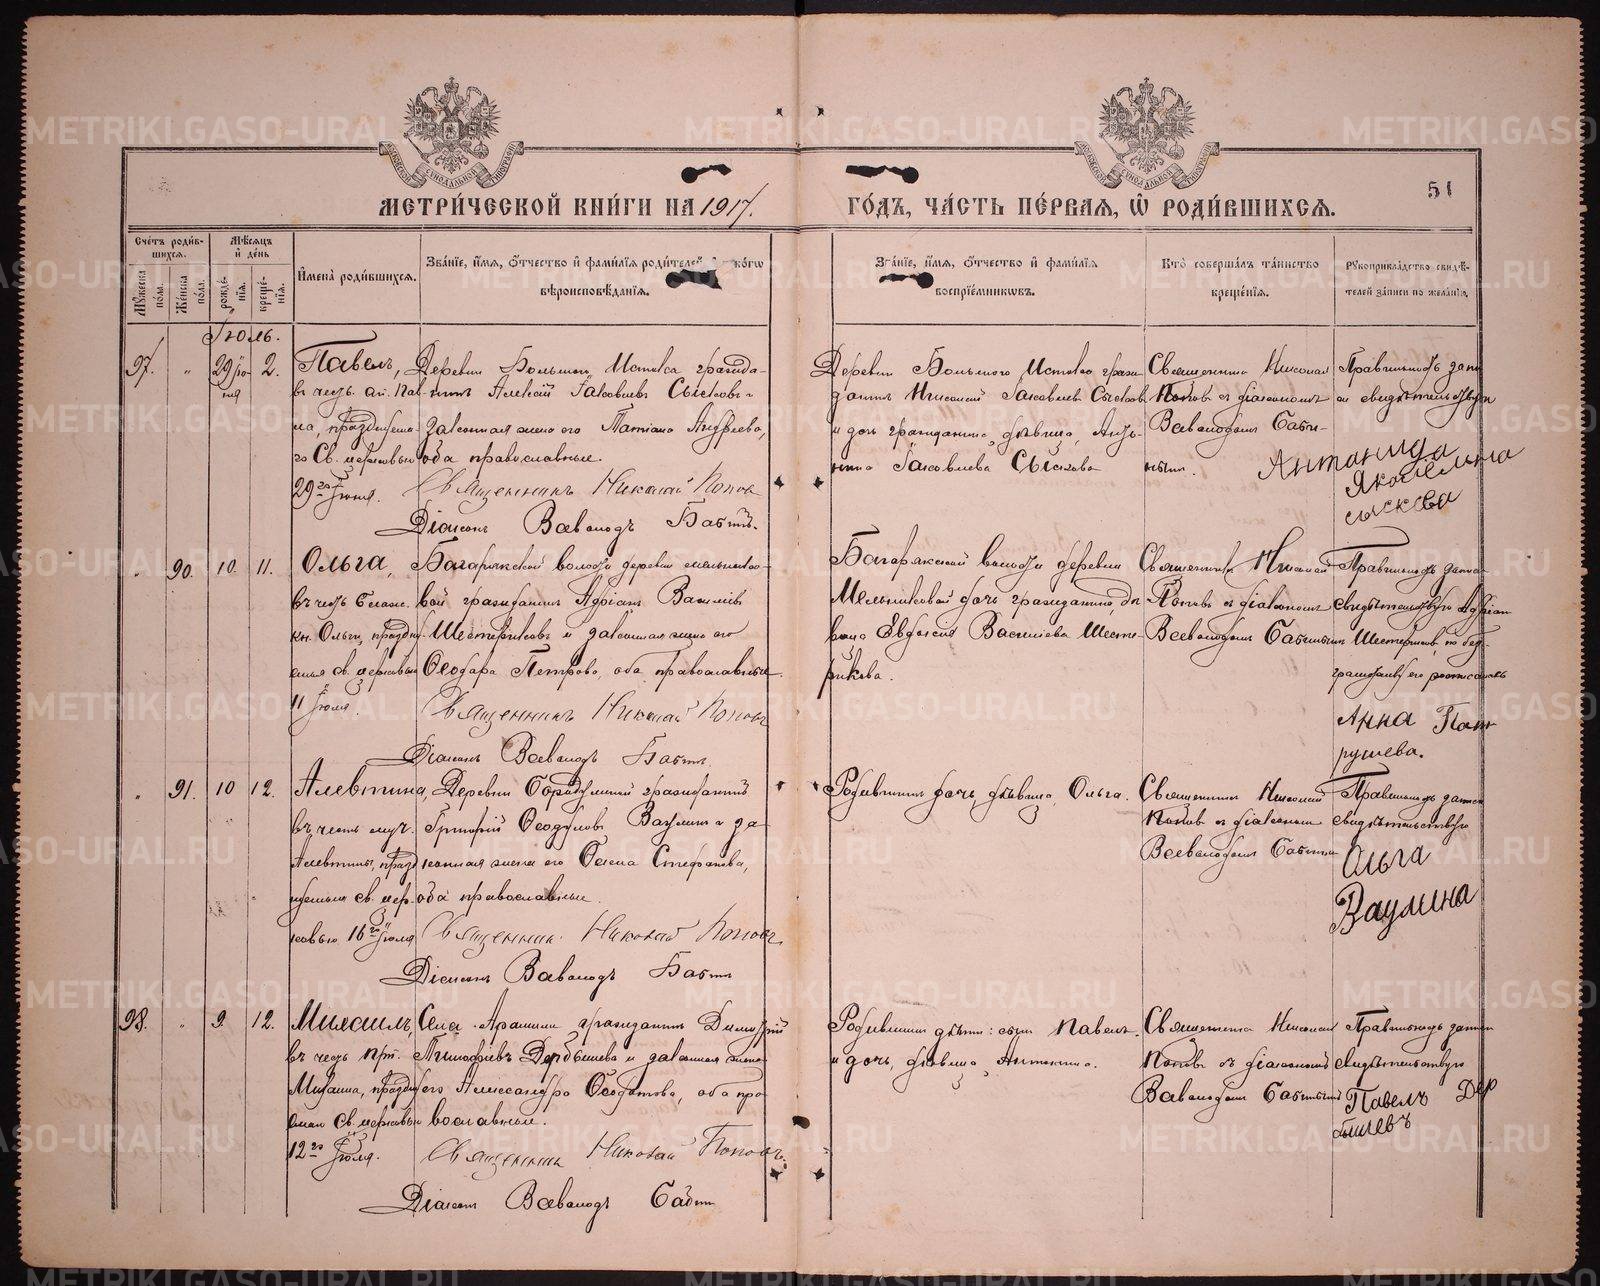 МЕТРИ́ЧЕСКОЙ КНИ́ГИ НА 1917 г.
ГО́ДЪ, ЧА́СТЬ ПЕ́РВАЯ, Ѡ РОДИ́ВШИХСЯ.
51
Сче́тъ роди́в-
шихся.
Мѣ́сяцъ
и де́нь
Му́жеска по́ла.
Же́нска по́ла.
рожде́-нія.
креще́-нія.
Имена̀ роди́вшихся.
Зва́ніе, и́мя, о́тчество и фами́лія роди́телей,
вѣроисповѣ́данія.
Зва́ніе, и́мя, о́тчество и фами́лія
воспріе́мниковъ.
Кто̀ соверша́лъ та́инство
креще́нія.
Рукоприкла́дство свидѣ́-
телей за́писи по жела́нію.
Іюль.
97. " 29 Іюня 2.
Павелъ,
въ честь ап. Пав-
ла, праздшемо-
го Св. церковью
29го Іюня.
Деревни Большой Истока гражда-
нинъ Алексій Іаковлевъ Сысковъ и
законная жена его Татіана Андреева,
оба православные.
Священникъ Николай Поповъ
Діаконъ Всеволодъ Бабинъ.
Деревни Большого Истока граж-
данинъ Николай Іаковлевъ Сысковъ
и дочь гражданина, дѣвица, Анто-
нина Іаковлева Сыскова
Священникъ Николай
Поповъ съ діакономъ
Всеволодомъ Баби-
нымъ.
Правильность запи-
си свидѣтельствую
Антанида
Якочелина
сыскова
" 90. 10. 11.
Ольга,
въ честь благов.
кн. Ольги, праздну-
емыя св. церковью
11 Іюля.
Багарякской волости деревни Мельнико-
вой гражданинъ Адріанъ Василіевъ
Шестериковъ и законная жена его
Ѳеодора Петрова, оба православные
Священникъ Николай Поповъ
Діаконъ Всеволодъ Бабинъ.
Багарякской волости деревни
Мельниковой дочь гражданина, дѣ-
вица Евдокія Василіева Шесте-
рикова.
Священникъ Николай
Поповъ съ діакономъ
Всеволодомъ Бабинымъ
Правильность записи
свидѣтельствую Адріанъ
Шестериковъ, по без-
грамотству его росписалась
Анна Пат
рушева.
" 91. 10 12.
Алевтина,
въ честь муч.
Алевтины, празд
нуемыя св. цер-
ковью 16го Іюля
Деревни Бородулиной гражданинъ
Григорій Ѳеодуловъ Ваулинъ и за-
конная жена его Ѳекла Стефанова,
оба православные.
Священникъ Николай Поповъ
Діаконъ Всеволодъ Бабинъ
Родившимъ дочь, дѣвица, Ольга.
Священникъ Николай
Поповъ съ діакономъ
Всеволодомъ Бабинымъ
Правильность записи
свидѣтельствую
Ольга
Ваулина
98. " 9. 12.
Михаилъ,
въ честь прп.
Михаила, праздну-
емаго св. церковью
12го Іюля.
Села Арамили гражданинъ Димитрій
Тимофеевъ Дербышевъ и законная жена
его Александра Ѳеодотова, оба пра-
вославные.
Священникъ Николай Поповъ.
Діаконъ Всеволодъ Бабинъ
Родившимъ дѣти: сынъ Павелъ
и дочь, дѣвица, Антонина.
Священникъ Николай
Поповъ съ діакономъ
Всеволодомъ Бабинымъ
Правильность записи
свидѣтельствую
Павелъ Дер
бышевъ